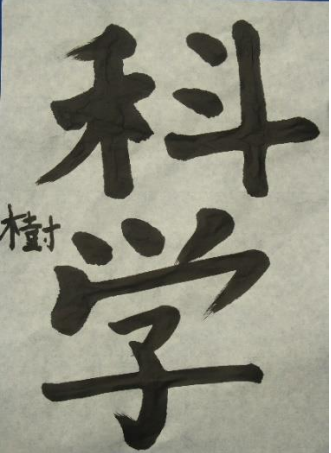 科学
樹